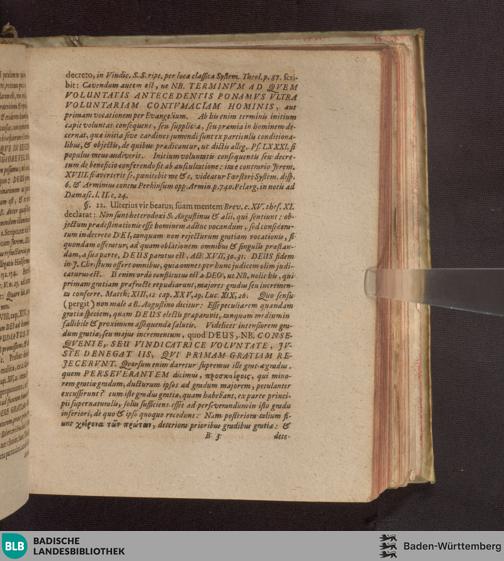 decreto, in Vindic. S.S. ript. per loca classica System. Theol. p. 87. scri-
bit: Cavendum autem est, ne NB. TERMINVM AD QVEM
VOLUNTATIS ANTECEDENTIS PONAMVS VLTRA
VOLUNTARIAM CONTVMACIAM HOMINIS, aut
primam vocationem per Evangelium. Ab his enim terminis initium
capit voluntas consequens, seu suppliciа, seu præmia in hominem de-
cernat, quæ initia sive cardines sumendi sunt ex partculis conditiona-
libus, & objectis, de quibus prædicantur, ut dictis allig. Ps. LXXXI. si
populus meus audiverit. Initium voluntatis consequentis seu decre-
tum de beneficio conferendo sit ab auscultatione: ut e contrario Jerem.
XVIII. si averterit se, pœnitebit me &c. videatur Forsteri System. disp.
6. & Arminius contra Perkinsum opp. Armin. p. 740. Pelarg. in notis ad
Damasc. l. II. c. 24.
§. 12. Ulterius vir beatus suam mentem Brev. c. XV. thes. XI.
declarat: Non sunt heterodoxi S. Augustinus & alii, qui sentiunt: ob-
jectum prædestinationis esse hominem adhuc vocandum, sed considera-
tum in decreto DEI, tanquam non rejecturum gratiam vocationis, si
quondam offeratur, ad quam oblationem omnibus & singulis præstan-
dam, a sua parte, DEUS paratus est. Act. XVII, 30. 31. DEUS fidem
in J. Christum offert omnibus, quia omnes per hunc judicem olim judi-
caturus est. Et enim ordo constitutus est a DEO, ut NB. nolis bis, qui
primam gratiam præfracte repudiarunt, majores gradus seu incremen-
tu conferre. Matth. XIII, 12. cap. XXV, 29. Luc. XIX, 26. Quo sensu
(pergit) non male a B. Augustino dicitur: Esse peculiarem quandam
gratiæ speciem, quam DEUS electis præparavit, tanquam medium in
fallibile & proximum assequendæ salutis. Videlicet intensiorem gra-
dum gratiæ, seu majus incrementum, quod DEUS, NB. CONSE-
QVENTE, SEU VINDICATRICE VOLUNTATE, JV-
STE DENEGAT IIS, QVI PRIMAM GRATIAM RE-
JECERVNT. Quorsum enim daretur supremus ille gratiæ gradus,
quem PERSEVERANTEM dicimus, προσκαίροις, qui mino-
rem gratiæ gradum, ducturum ipsos ad gradum majorem, petulanter
excusserunt? cum iste gradus gratiæ, quam habebant, ex parte princi-
pii supernaturalis, solus sufficiens esset ad perseverandum in isto gradu
inferiori, de quo & ipso quoque recedunt: Nam posteriora talium fi-
unt χείρονα τῶν πρώτων, deteriora prioribus gradibus gratiæ: &
B 3 dete-
BLB BADISCHE
LANDESBIBLIOTHEK
Baden-Württemberg